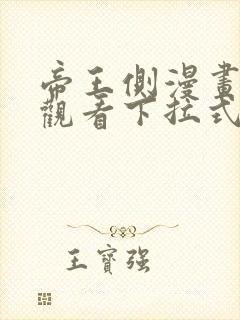 帝王側漫畫
觀看下拉式
王寶強